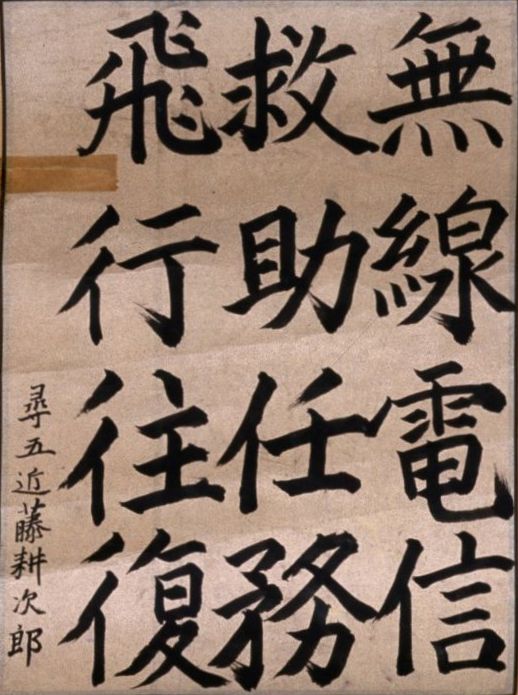 無線電信
救助任務
飛行往復
尋五近藤耕次郎